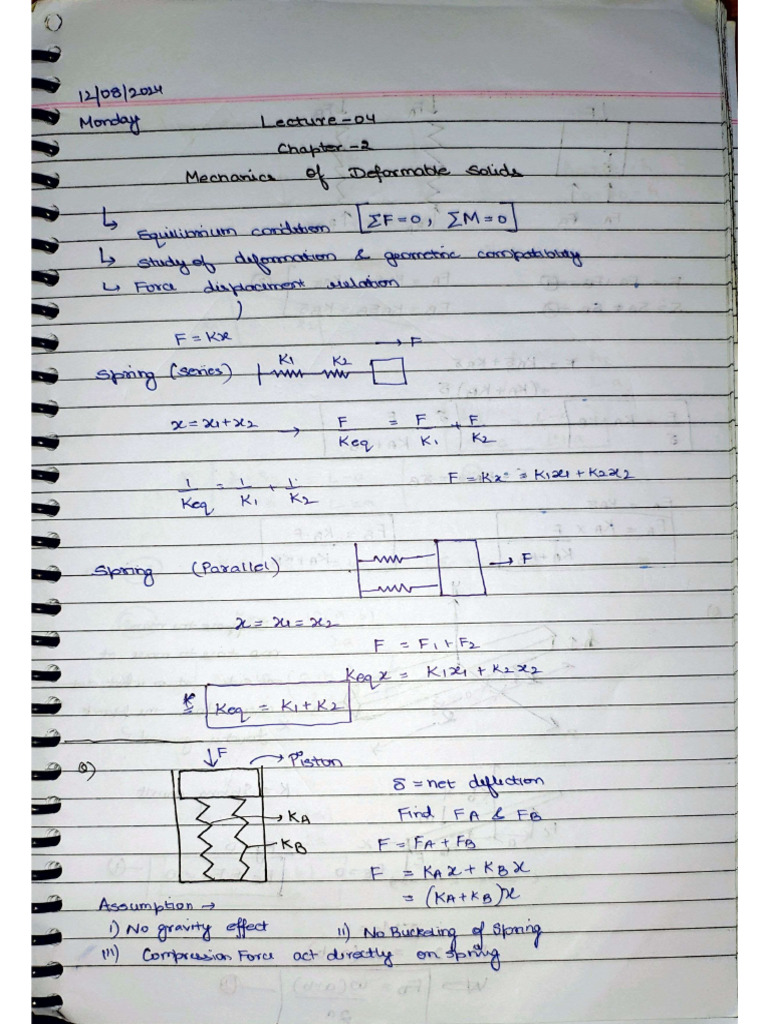 12/08/2024
Monday
Lecture-04
Chapter-2
Mechanics of Deformable Solids
↳ Equilibrium condition [ΣF=0, ΣM=0]
↳ Study of deformation & geometric compatibility
↳ Force displacment relation
F = Kx
→ F
Spring (series) K1 K2
x = x1+x2 → F/Keq = F/K1 + F/K2
1/Keq = 1/K1 + 1/K2
F = Kx = K1x1 + K2x2
Spring (Parallel) → F
x = x1 = x2
F = F1 + F2
Keq x = K1x1 + K2x2
Keq = K1 + K2
Q) ↓F → Piston
δ = net deflection
→ KA Find FA & FB
KB F = FA + FB
F = KA x + KB x
= (KA+KB)x
Assumption →
i) No gravity effect ii) No Buckeling of Spring
iii) Compression Force act directly on spring